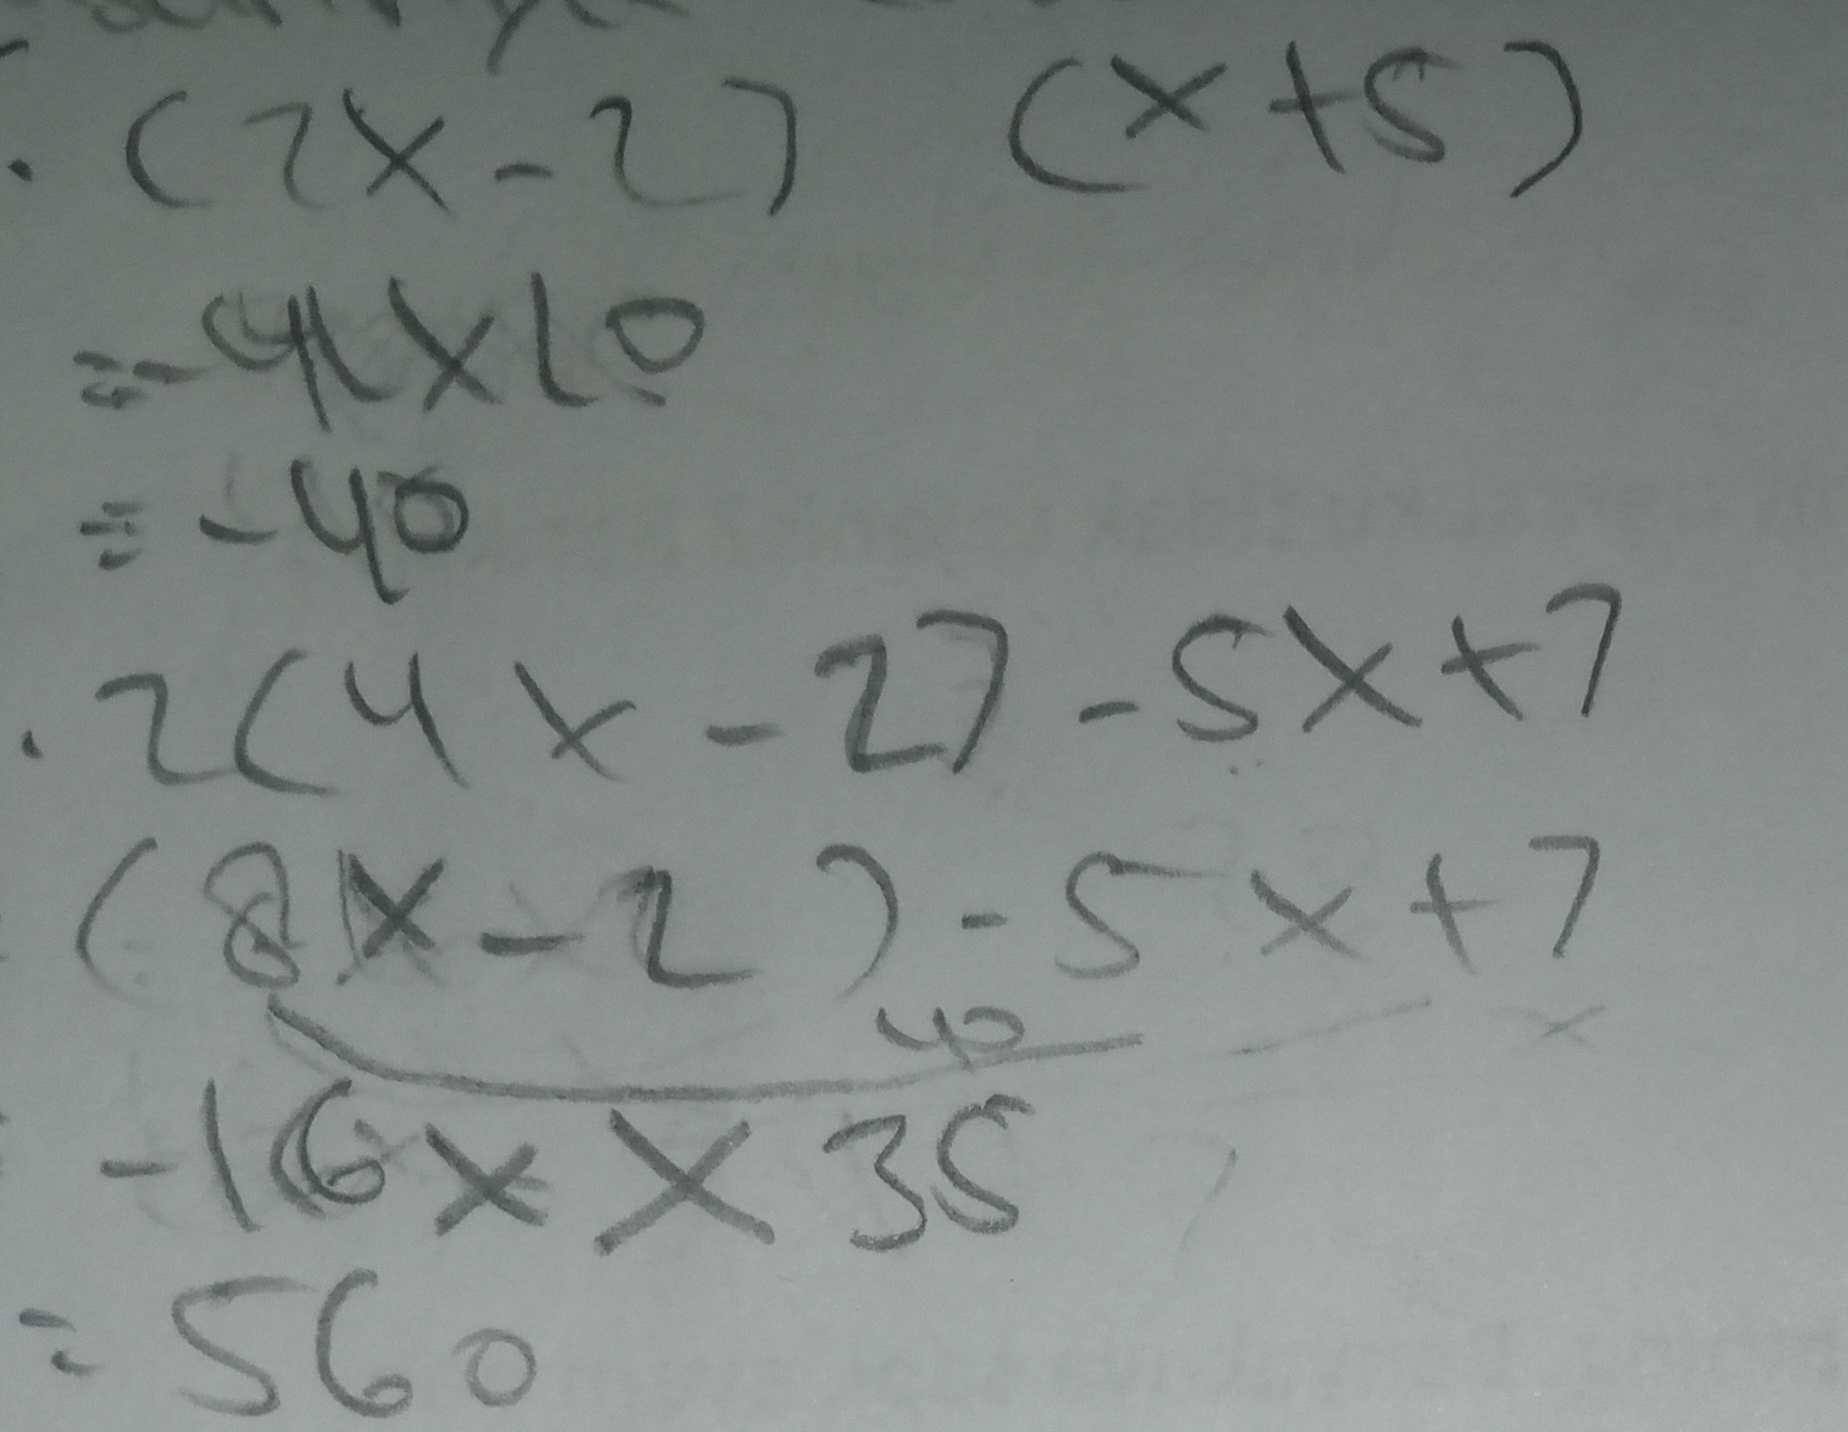 . (2x-2) (x+5)
= -4x10
= -40
. 2(4x-2)-5x+7
(8x-2)-5x+7
40
-16x x 35
= 560